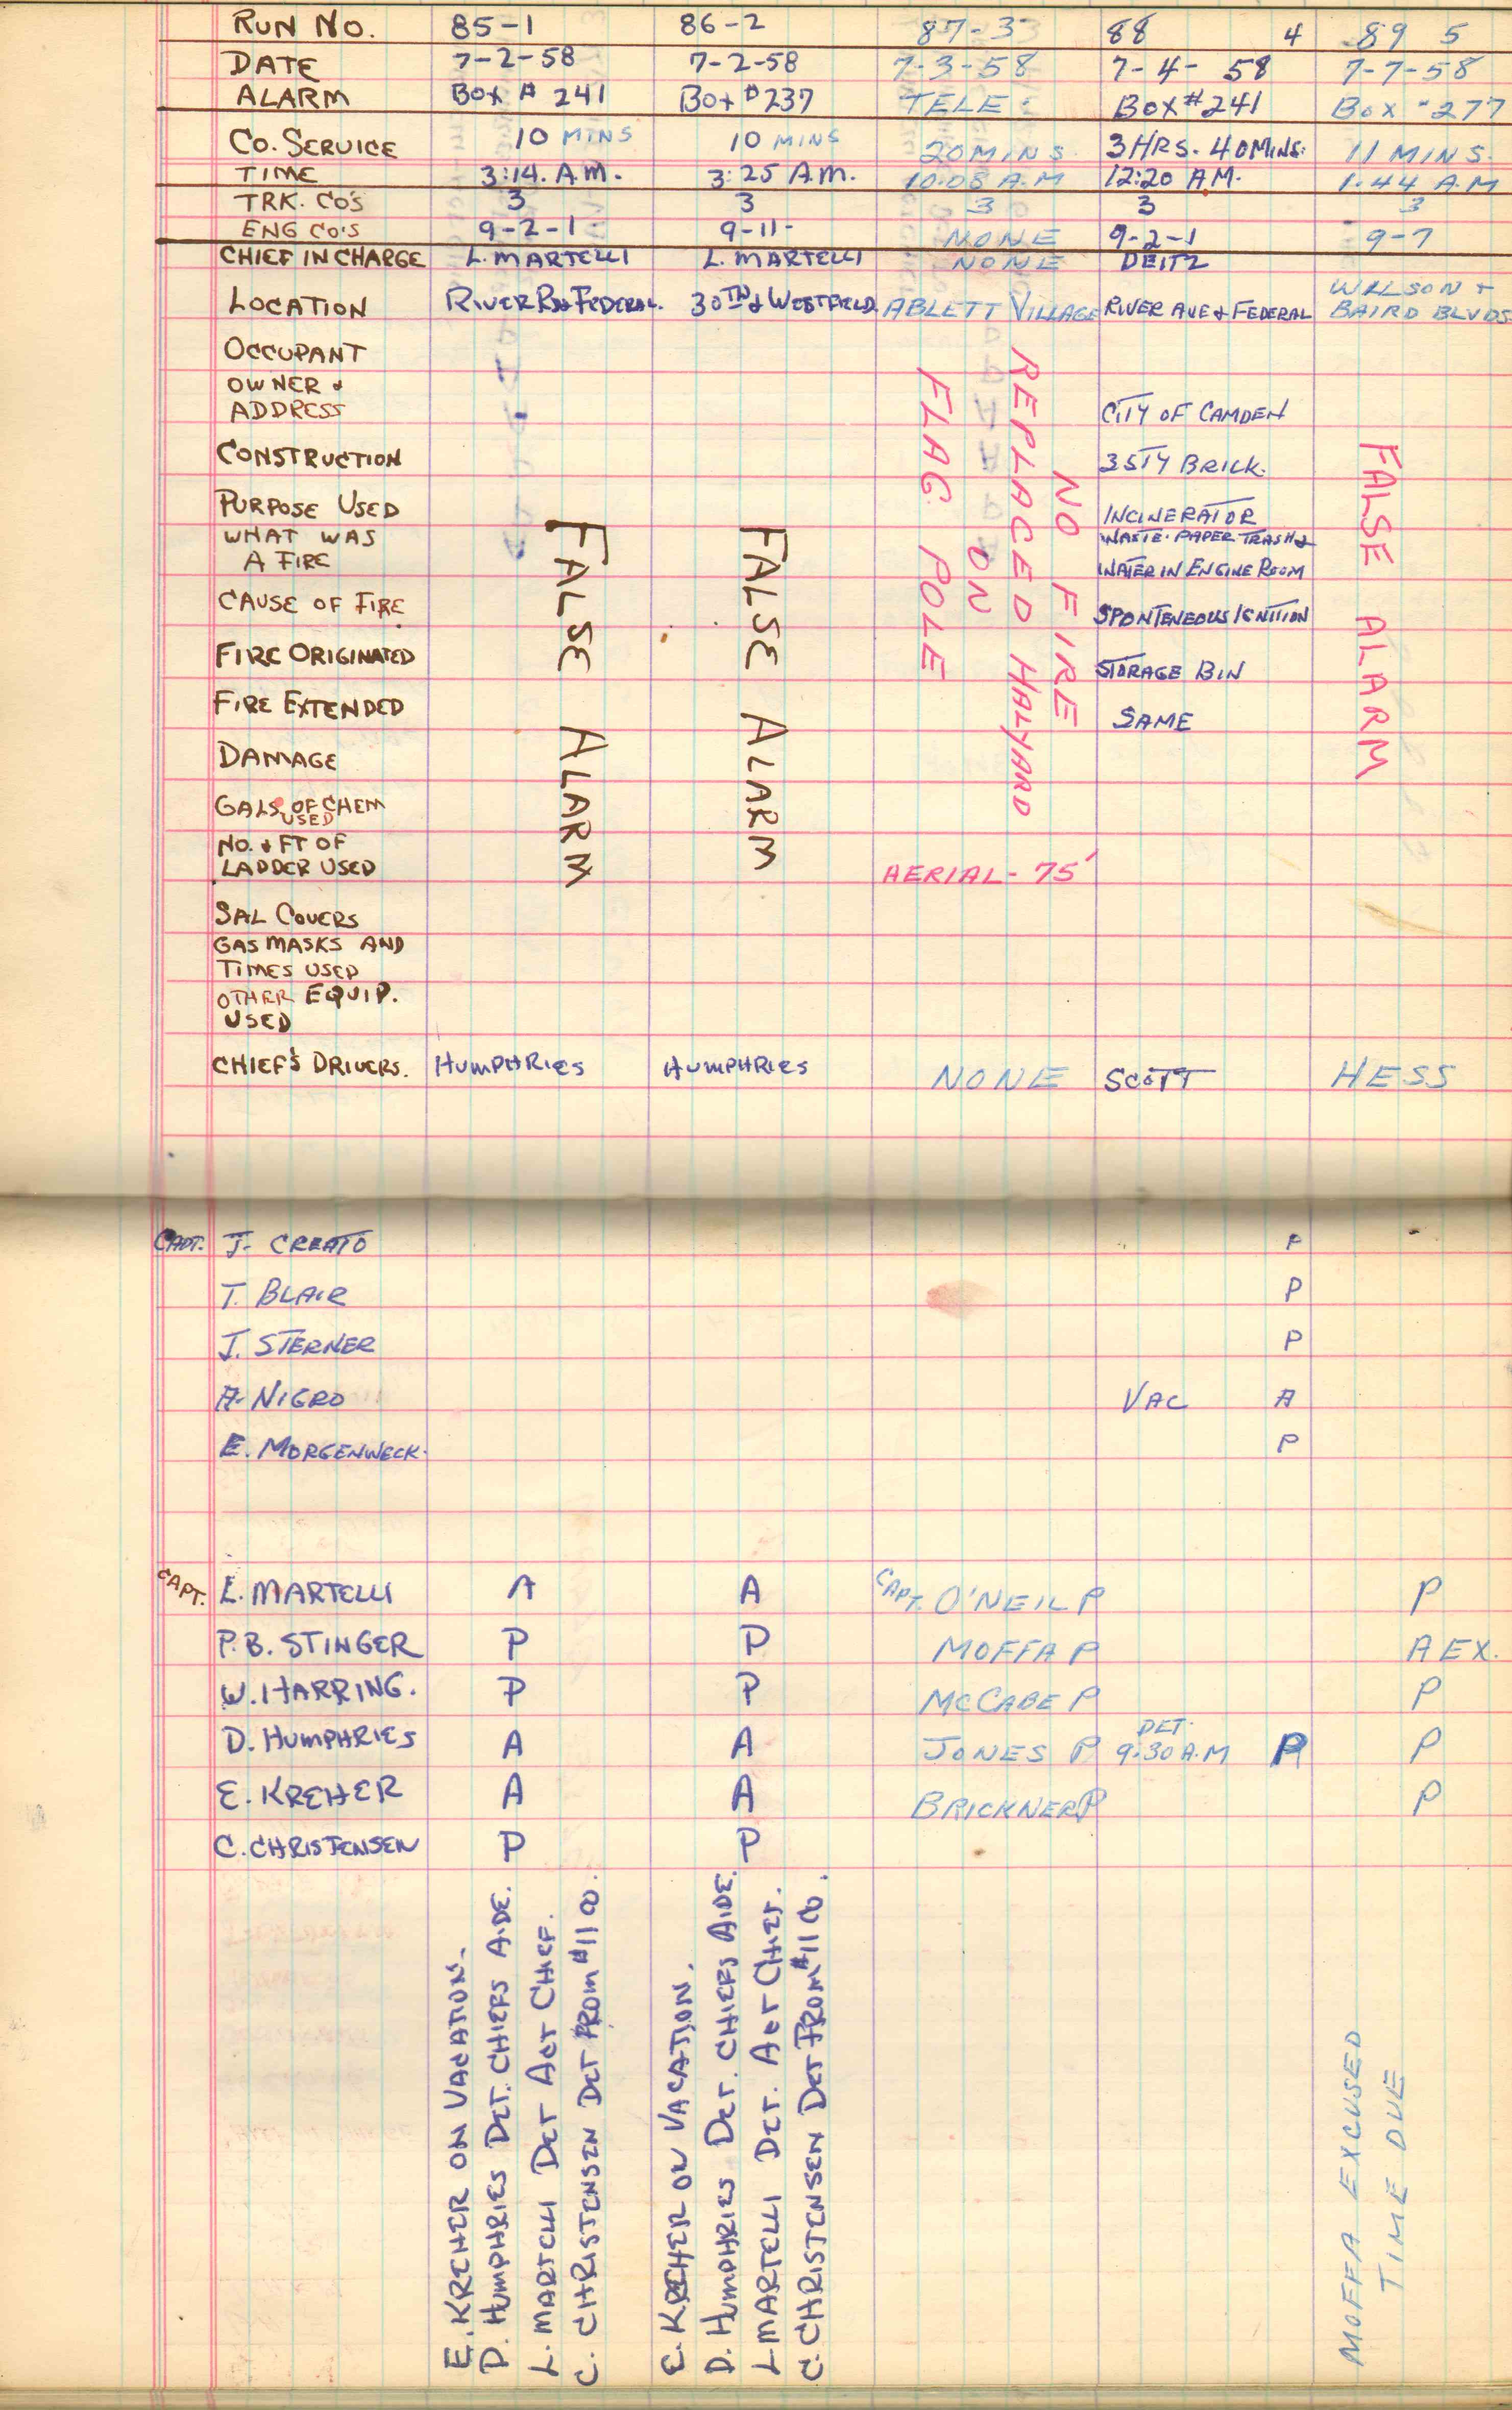 RUN NO. 85-1 86-2 87-3 88 4 89 5
DATE 7-2-58 7-2-58 7-3-58 7-4-58 7-7-58
ALARM BOX # 241 BOX #237 TELE. BOX #241 BOX -277
CO. SERVICE 10 MINS 10 MINS 20 MINS 3 HRS. 40 MINS. 11 MINS.
TIME 3:14. A.M. 3:25 A.M. 10:08 A.M 12:20 A.M. 1:44 A.M
TRK. CO'S 3 3 3 3 3
ENG CO'S 9-2-1 9-11- NONE 9-2-1 9-7
CHIEF IN CHARGE L. MARTELLI L. MARTELLI NONE DEITZ
LOCATION RIVER RD & FEDERAL. 30TH & WESTFIELD. ABLETT VILLAGE RIVER AVE & FEDERAL WILSON + BAIRD BLVDS
OCCUPANT
OWNER &
ADDRESS CITY OF CAMDEN
CONSTRUCTION 3 STY BRICK.
PURPOSE USED INCINERATOR
WHAT WAS WASTE PAPER TRASH &
A FIRE WATER IN ENGINE ROOM
CAUSE OF FIRE SPONTENEOUS IGNITION
FIRE ORIGINATED STORAGE BIN
FIRE EXTENDED SAME
DAMAGE
GALS. OF CHEM
USED
NO. & FT OF
LADDER USED AERIAL - 75'
SAL COVERS
GAS MASKS AND
TIMES USED
OTHER EQUIP.
USED
CHIEF'S DRIVERS. HUMPHRIES HUMPHRIES NONE SCOTT HESS
FALSE ALARM
FALSE ALARM
NO FIRE
REPLACED HALYARD
ON
FLAG POLE
FALSE ALARM
CAPT. J. CREATO P
T. BLAIR P
J. STERNER P
A. NIGRO VAC A
E. MORGENWECK. P
CAPT. L. MARTELLI A A CAPT. O'NEIL P P
P.B. STINGER P P MOFFA P A EX.
W. HARRING. P P McCABE P P
D. HUMPHRIES A A JONES P DET. 9:30 A.M P P
E. KREHER A A BRICKNER P P
C. CHRISTENSEN P P
E. KREHER ON VACATION.
D. HUMPHRIES DET. CHIEFS AIDE.
L. MARTELLI DET ACT CHIEF.
C. CHRISTENSEN DET FROM #11 CO.
E. KREHER ON VACATION.
D. HUMPHRIES DET. CHIEFS AIDE.
L MARTELLI DET. ACT CHIEF.
C. CHRISTENSEN DET FROM #11 CO.
MOFFA EXCUSED
TIME DUE